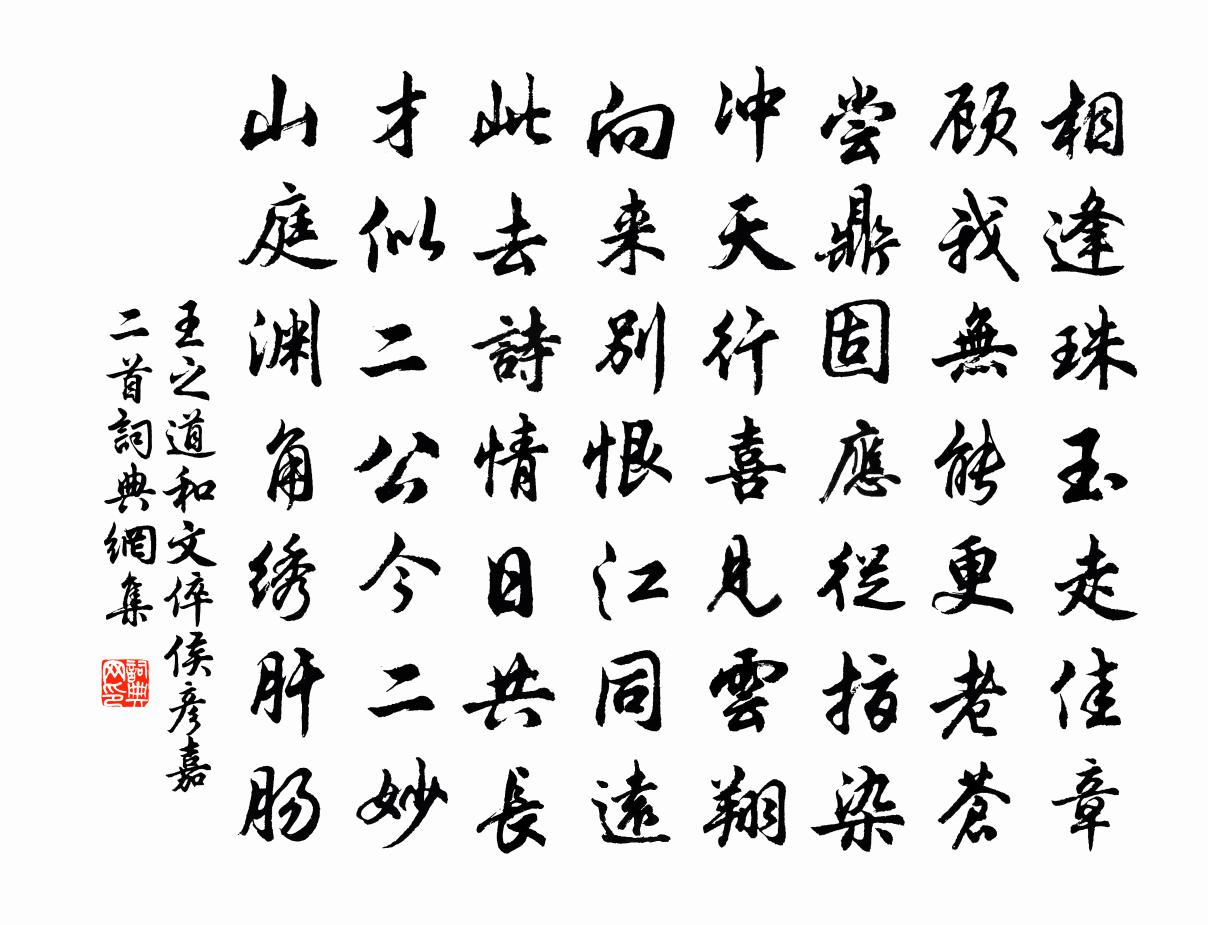 相逢珠玉走佳章
顾我無能更老蒼
尝鼎固應従指染
冲天行喜見雲翔
向来別恨江同遠
此去詩情日共長
才似二公今二妙
山庭渊角绣肝肠
王之道和文倅侯彦嘉
二首詞典網集
詞典网印